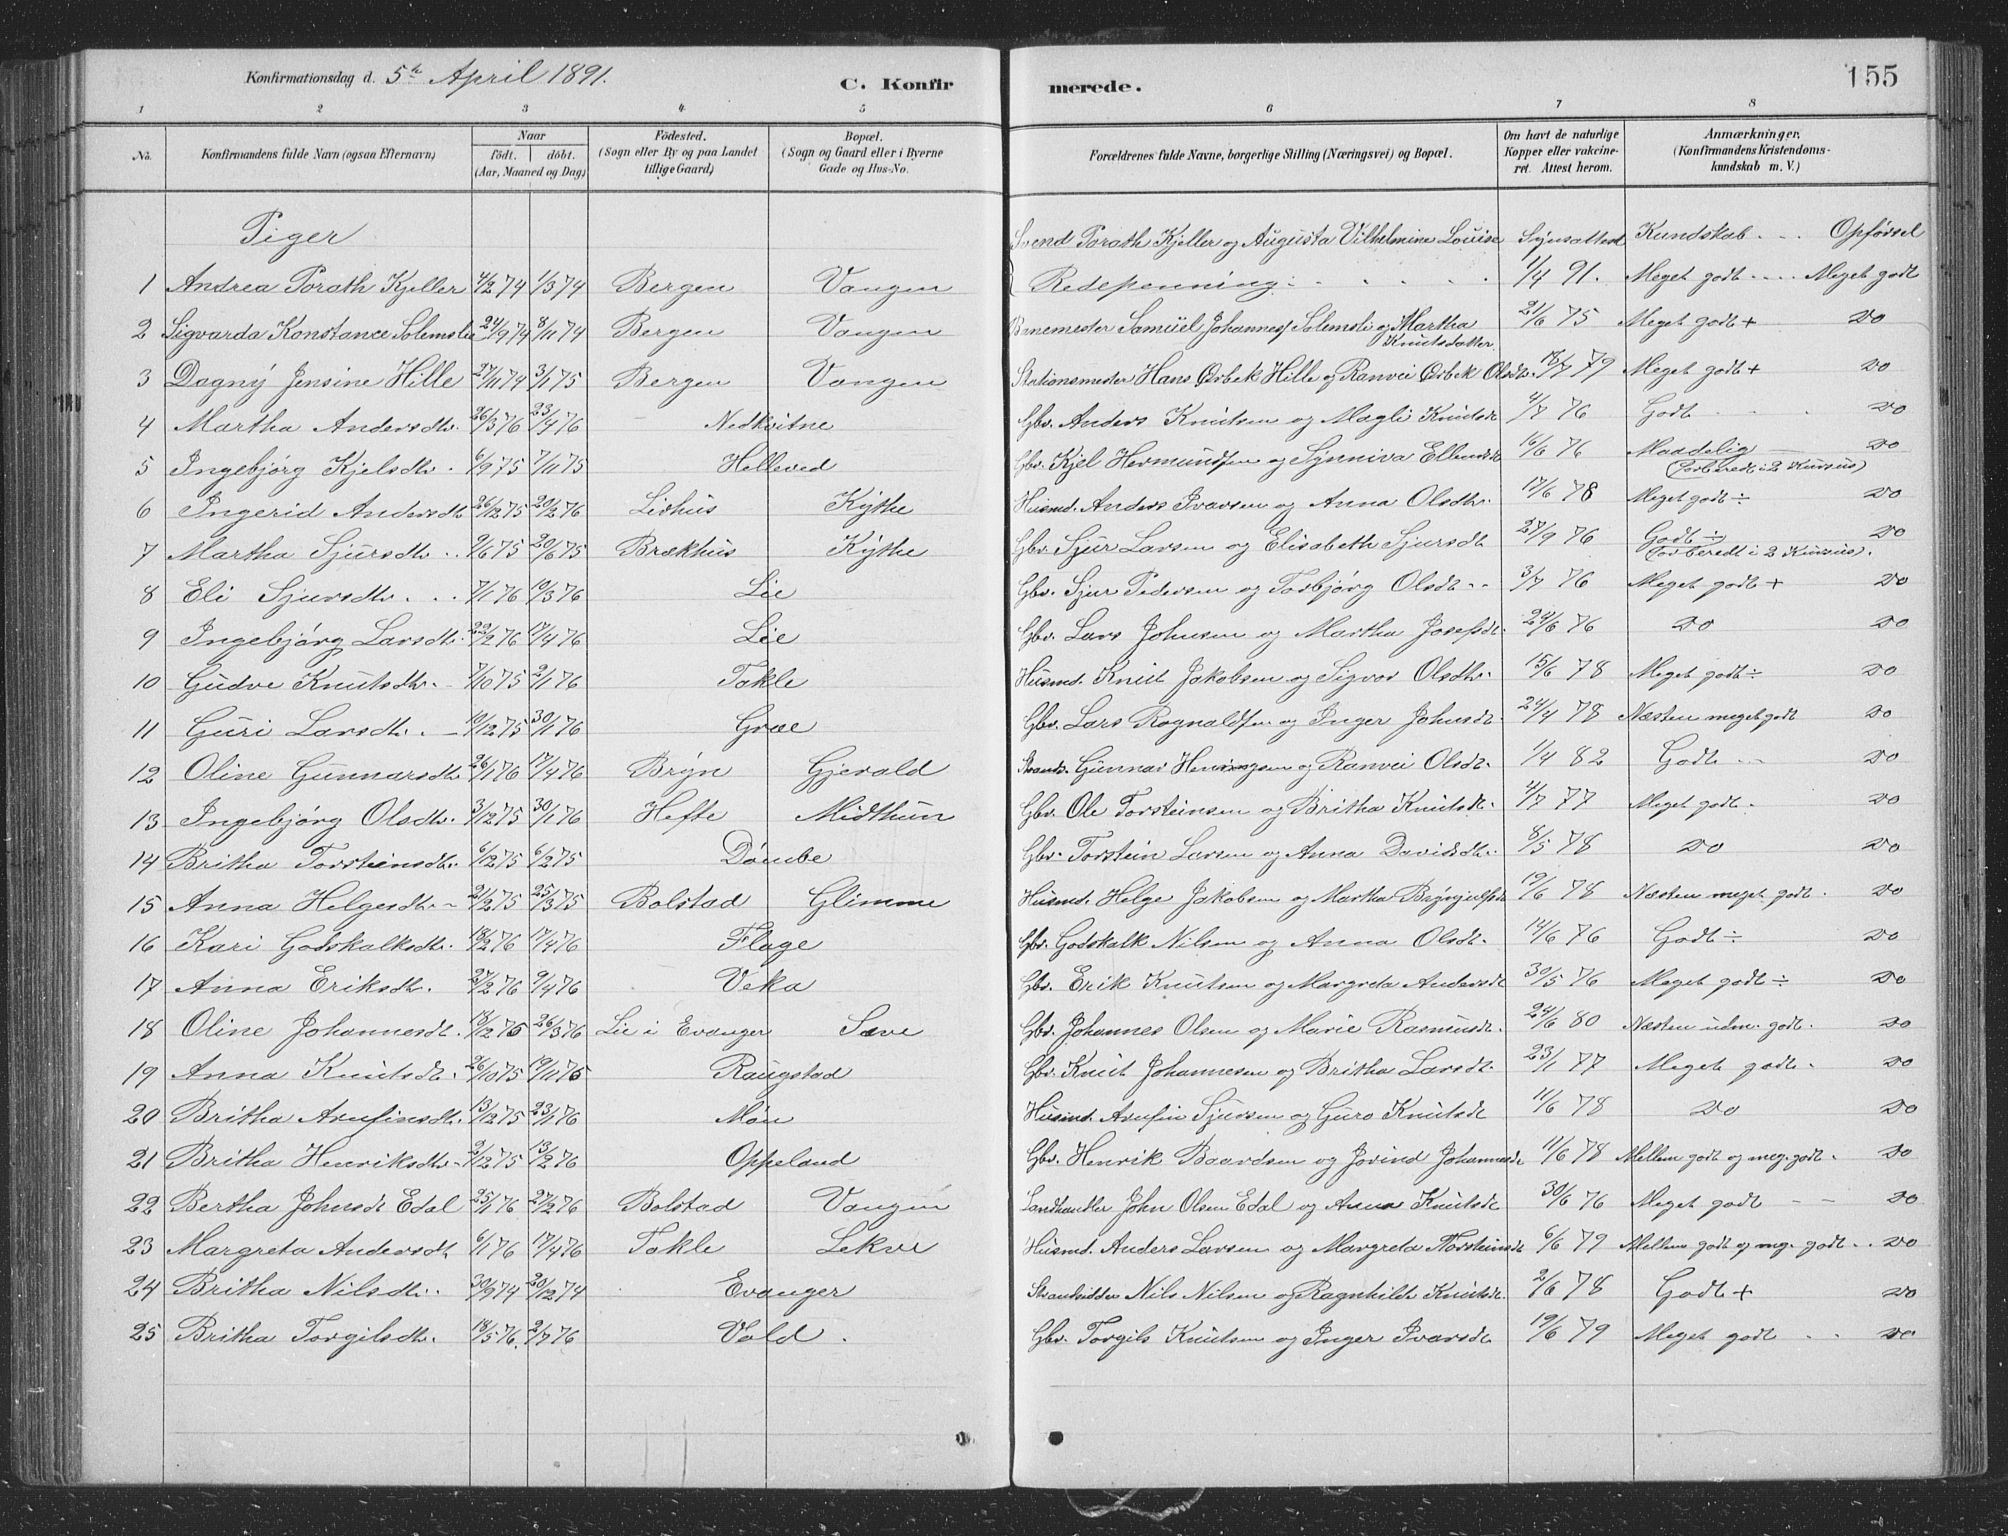 Konfirmationsdag d. 5te April 1891.
C. Konfirmerede.
155
1 2 3 4 5 6 7 8
No.
Konfirmandens fulde Navn (ogsaa Efternavn)
Naar
födt. döbt.
(Aar, Maaned og Dag)
Födested.
(Sogn eller By og paa Landet tillige Gaard)
Bopæl.
(Sogn og Gaard eller i Byerne Gade og Hus-No.
Forældrenes fulde Navne, borgerlige Stilling (Næringsvei) og Bopæl.
Om havt de naturlige Kopper eller vakcineret. Attest herom.
Anmærkninger.
(Konfirmandens Kristendomskundskab m. V.)
Piger
Svend Porath Kjeller og Augusta Vilhelmine Louise Synsattest Kundskab Opförsel
1 Andrea Porath Kjeller 4/2 74 1/3 74 Bergen Vangen Redepenning 1/4 91. Meget godt Meget godt
2 Sigvarda Konstance Solemslie 24/9 74 8/11 74 Bergen Vangen Banemester Samuel Johannes Solemsli og Martha Knutsdatter 21/6 75 Meget godt + Do
3 Dagny Jensine Hille 27/11 74 3/1 75 Bergen Vangen Stationsmester Hans Ørbek Hille og Ranvei Ørbek Olsdtr. 18/7 79 Meget godt + Do
4 Martha Andersdtr. 26/3 76 23/4 76 Nedkvitne Gbr. Anders Knutsen og Magli Knutsdt 4/7 76 Godt Do
5 Ingebjørg Kjelsdtr. 6/9 75 7/11 75 Helleved Gbr. Kjel Hermundsen og Synniva Ellensdt 16/6 76 Maadelig Do
(forberedt i 2 Kursus)
6 Ingerid Andersdt 26/12 75 20/2 76 Lidhus Kythe Husmd. Anders Ivarsen og Anna Olsdtr. 17/6 78 Meget godt ÷ Do
7 Martha Sjursdtr. 9/6 75 20/6 75 Brækhus Kythe Gbr. Sjur Larsen og Elisabeth Sjursdt 27/9 76 Godt ÷ Do
(forberedt i 2 Kursus).
8 Eli Sjursdtr. 7/1 76 19/3 76 Lie Gbr. Sjur Pedersen og Torbjørg Olsdt 3/7 76 Meget godt + Do
9 Ingebjørg Larsdtr. 22/2 76 17/4 76 Lie Gbr. Lars Johnsen og Martha Josefsdt. 24/6 76 Do Do
10 Gudve Knutsdtr. 7/10 75 2/1 76 Takle Husmd. Knut Jakobsen og Sigvor Olsdtr. 15/6 78 Meget godt ÷ Do
11 Guri Larsdtr. 19/12 75 30/1 76 Græe Gbr. Lars Rognaldsen og Inger Johnsdt. 24/4 78 Næsten meget godt Do
12 Oline Gunnarsdtr. 26/1 76 17/4 76 Bryn Gjerald Gunnar Henningsen og Ranvei Olsdt. 1/4 82 Godt Do
13 Ingebjørg Olsdtr. 3/12 75 30/1 76 Hefte Midthun Gbr. Ole Torsteinsen og Britha Knutsdt. 4/7 77 Meget godt Do
14 Britha Torsteinsdtr. 6/12 75 6/2 75 Dømbe Gbr. Torstein Larsen og Anna Davidsdt. 8/5 78 Do Do
15 Anna Helgesdtr. 21/2 75 25/3 75 Bolstad Glimme Husmd. Helge Jakobsen og Martha Brynjulfsdt 19/6 78 Næsten meget godt. Do
16 Kari Godskalksdtr. 18/2 76 17/4 76 Flage Gbr. Godskalk Nilsen og Anna Olsdt. 14/6 76 Godt ÷ Do
17 Anna Eriksdtr. 27/2 76 9/4 76 Veka Gbr. Erik Knutsen og Margreta Andersdt 30/5 76 Meget godt ÷ Do
18 Oline Johannesdt. 18/12 75 26/3 76 Lie i Evanger Sæve Gbr. Johannes Olsen og Marie Rasmusdt. 24/6 80 Næsten udm. godt. Do
19 Anna Knutsdt. 26/10 75 19/11 75 Raugstad Gbr. Knut Johannesen og Britha Larsdt. 23/1 77 Meget godt. Do
20 Britha Arnfinsdt. 13/12 75 23/1 76 Møn Husmd. Arnfin Sjursen og Guro Knutsdt 11/6 78 Do Do
21 Britha Henriksdtr. 9/12 75 13/2 76 Oppeland Gbr. Henrik Baardsen og Jorind Johannesdt 11/6 78 Mellem godt og meg. godt. Do
22 Bertha Johnsdt Edal 25/1 76 27/2 76 Bolstad Vangen Landhandler John Olsen Edal og Anna Knutsdt 30/6 76 Meget godt Do
23 Margreta Andersdt. 6/1 76 17/4 76 Takle Lekve Husmd. Anders Larsen og Margreta Torsteinsdt 6/6 79 Mellem godt og mg. godt. Do
24 Britha Nilsdtr. 30/9 74 20/12 74 Evanger Strandsidder Nils Nilsen og Ragnhilde Knutsdt. 2/6 78 Godt + Do
25 Britha Torgilsdtr. 18/5 76. 2/7 76 Vold. Gbr. Torgils Knutsen og Inger Ivarsdt. 19/6 79 Meget godt Do